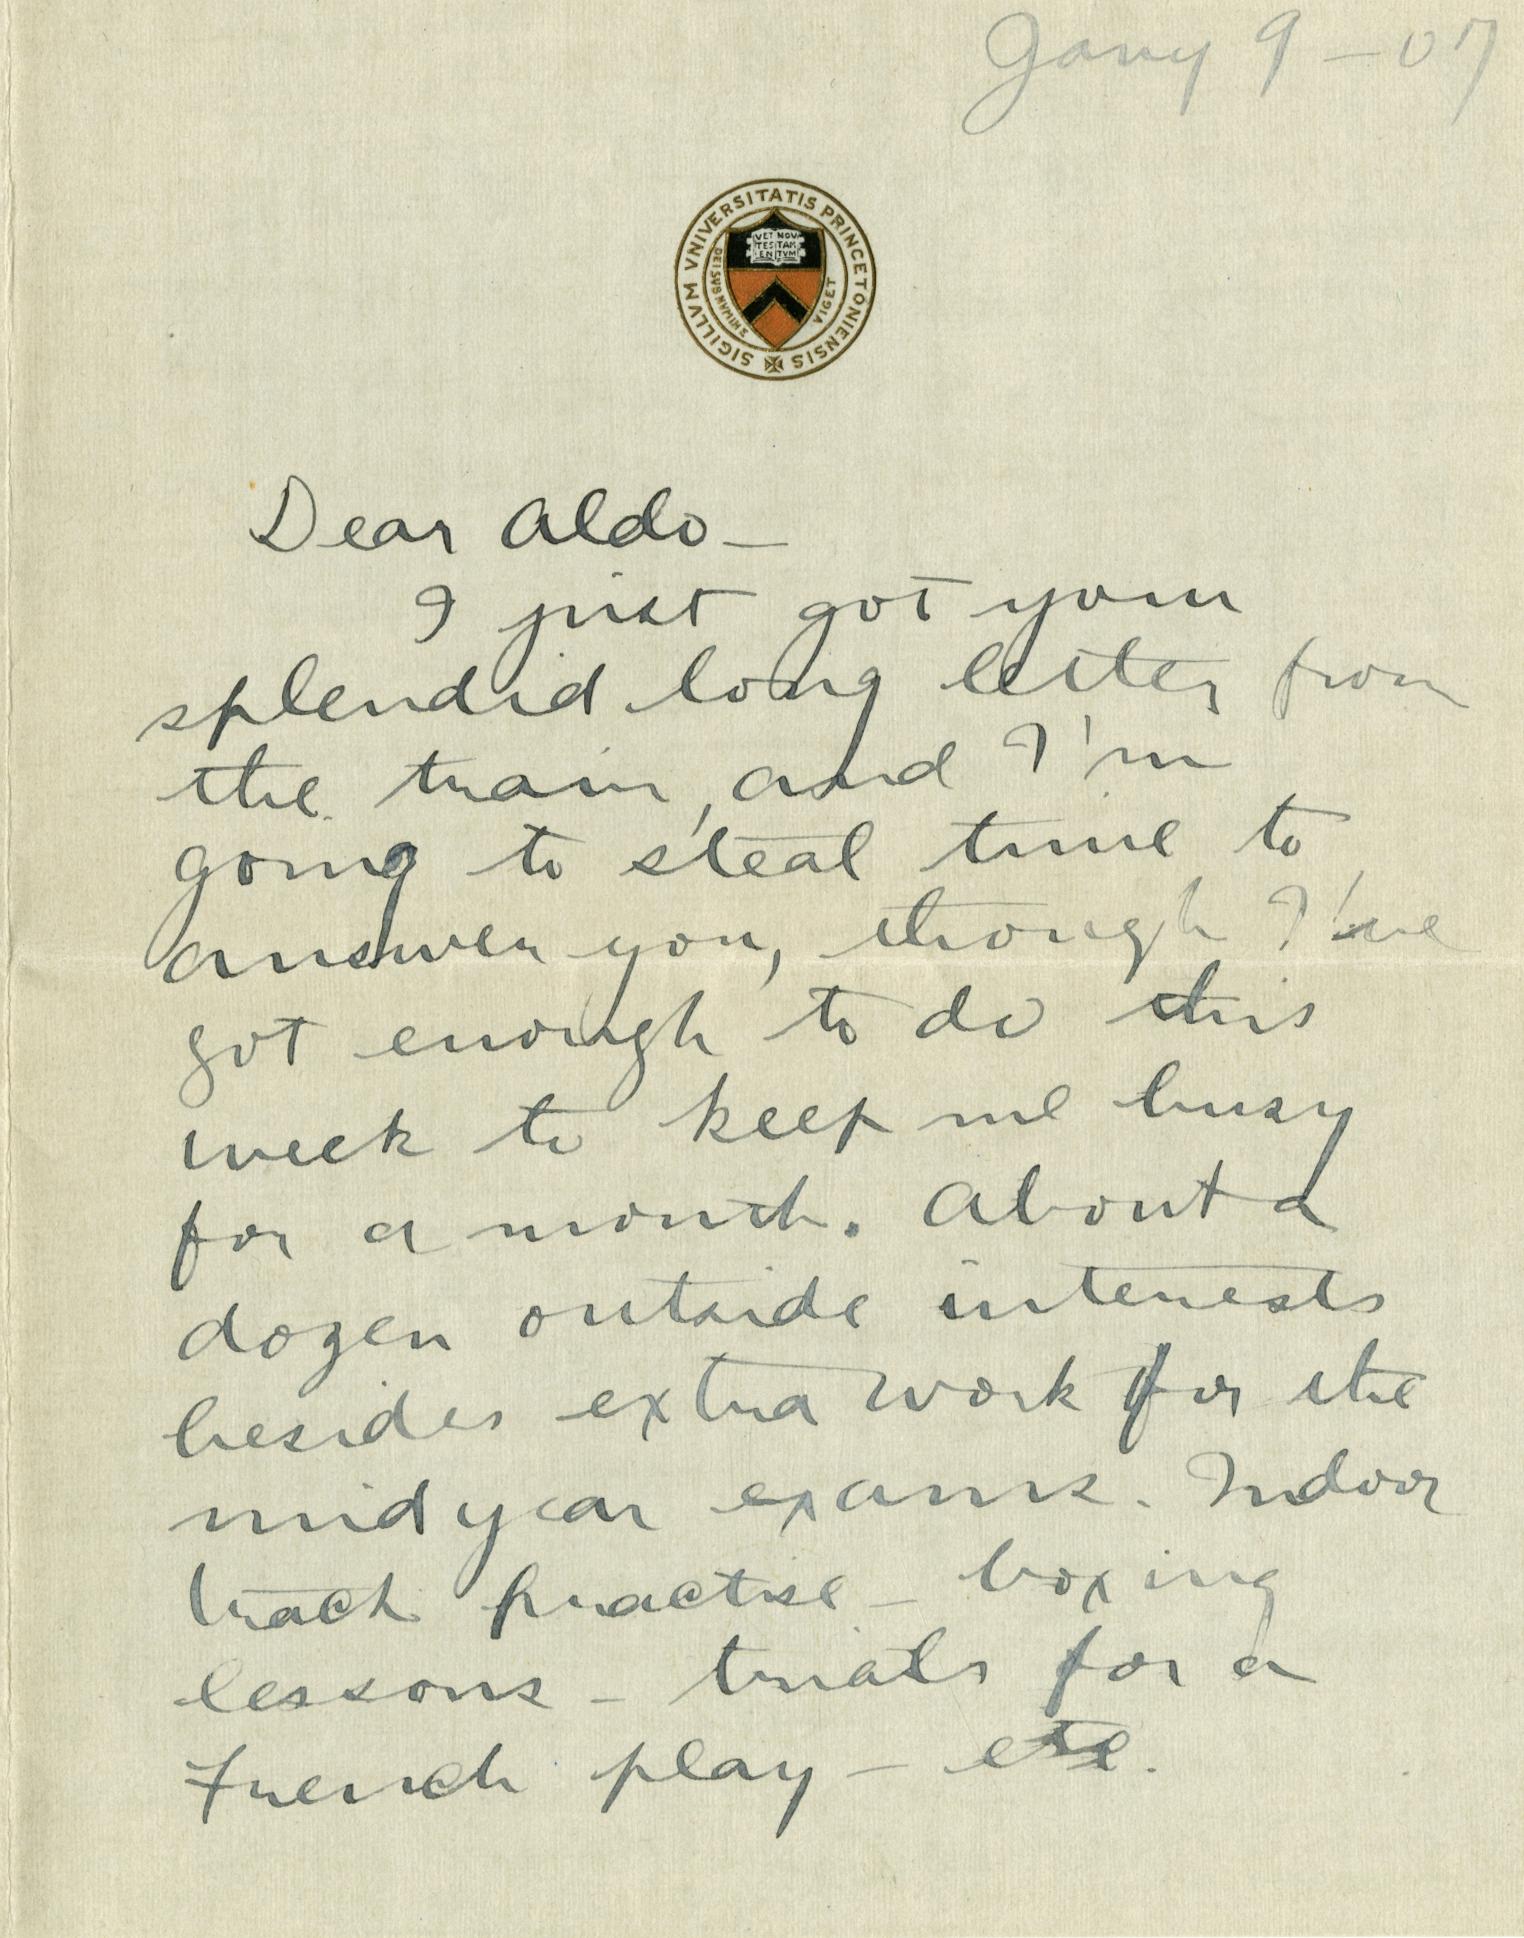 Jany 9 - 07
SIGILLVM VNIVERSITATIS PRINCETONIENSIS
VET NOV
TESTAM
ENTVM
DEI SVB NVMINE VIGET
Dear Aldo -
I just got your
splendid long letter from
the train, and I'm
going to steal time to
answer you, though I've
got enough to do this
week to keep me busy
for a month. About a
dozen outside interests
besides extra work for the
midyear exams. Indoor
track practise - boxing
lessons - trials for a
French play - etc.